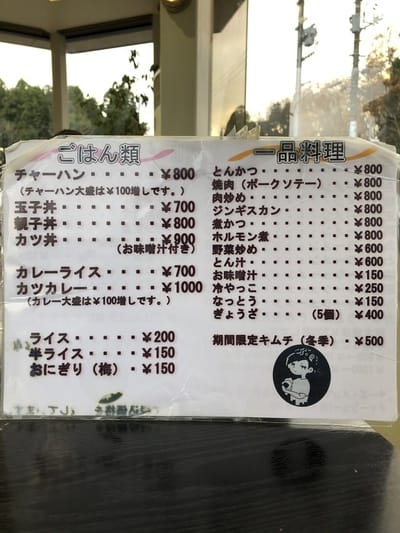 ごはん類
チャーハン・・・・・¥800
(チャーハン大盛は¥100増しです。)
玉子丼・・・・・・・¥700
親子丼・・・・・・・¥800
カツ丼・・・・・・・¥900
(お味噌汁付き)
カレーライス・・・・¥700
カツカレー・・・・・¥1000
(カレー大盛は¥100増しです。)
ライス・・・・¥200
半ライス・・・¥150
おにぎり(梅)・¥150
一品料理
とんかつ・・・・・・・・¥800
焼肉(ポークソテー)・・・¥800
肉炒め・・・・・・・・・¥800
ジンギスカン・・・・・・¥800
煮かつ・・・・・・・・・¥800
ホルモン煮・・・・・・・¥800
野菜炒め・・・・・・・・¥600
とん汁・・・・・・・・・¥600
お味噌汁・・・・・・・・¥150
冷やっこ・・・・・・・・¥250
なっとう・・・・・・・・¥150
ぎょうざ・・・・(5個)¥400
期間限定キムチ(冬季)・¥500